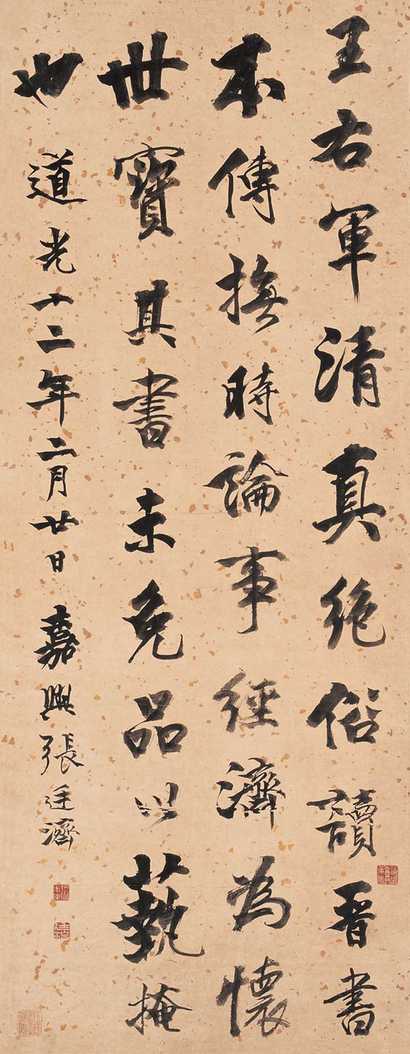 王右軍清真絶俗讀晉書
本傳撫時論事經濟為懷
世寶其書未免品以藝掩
也 道光十二年二月廿日 嘉興張廷濟